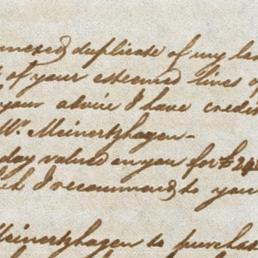 annexed duplicate of my la
of your esteemed lives of
your advice I have credit
Wr. Meinertzhagen-
day valued on you for £ 24
ch I recommend to your
Meinertzhagen to purchas